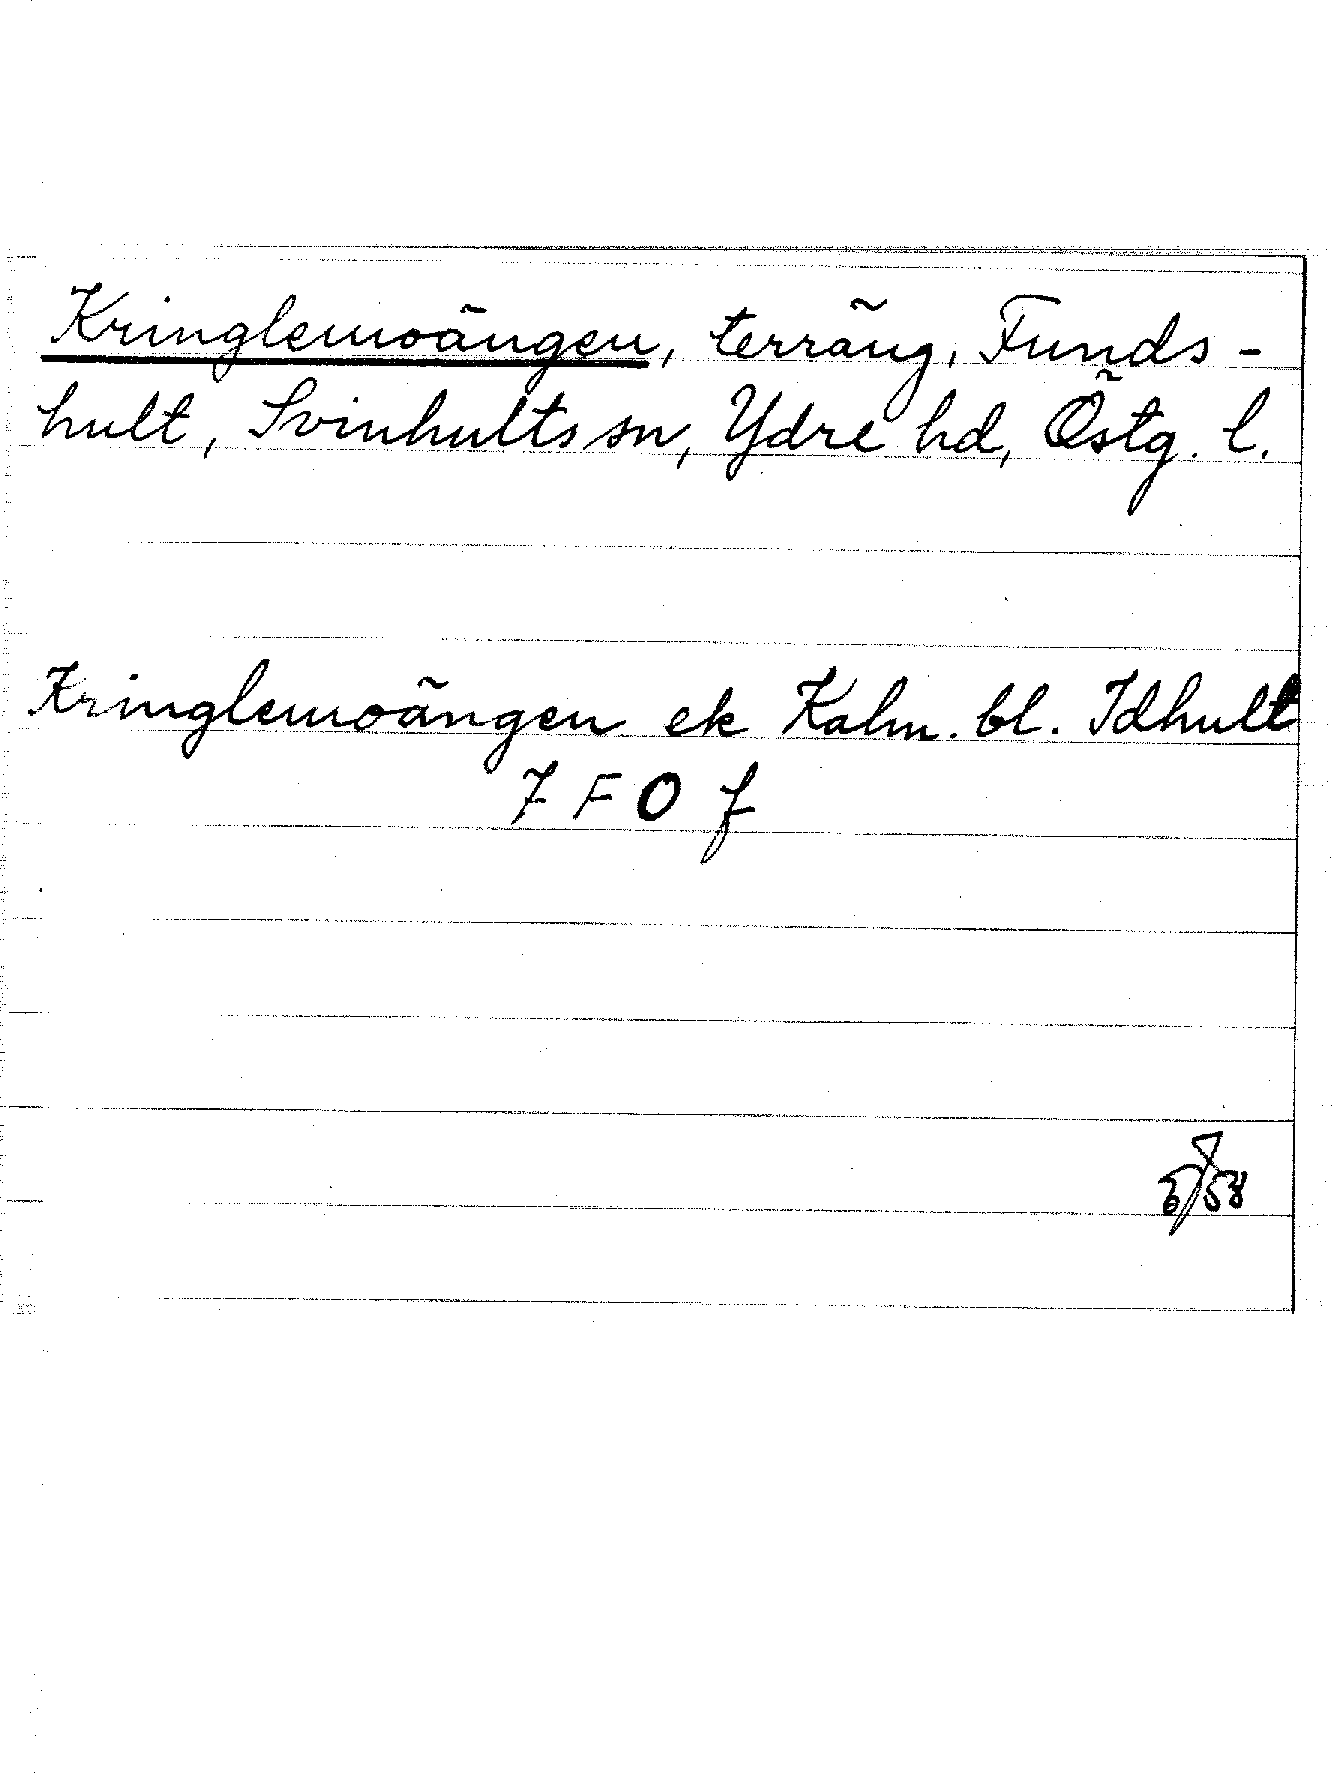 Kringlemoängen, terräng, Funds-
hult, Svinhults sn, Ydre hd, Östg. l.
Kringlemoängen ek Kalm. bl. Idhult
7 F 0 f